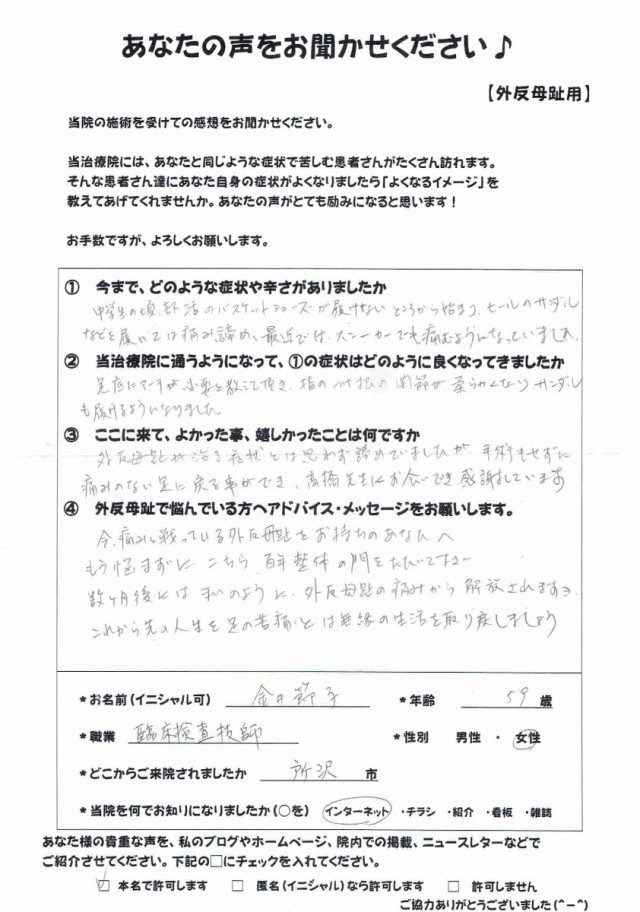 あなたの声をお聞かせください♪
【外反母趾用】
当院の施術を受けての感想をお聞かせください。
当治療院には、あなたと同じような症状で苦しむ患者さんがたくさん訪れます。
そんな患者さん達にあなた自身の症状がよくなりましたら「よくなるイメージ」を
教えてあげてくれませんか。あなたの声がとても励みになると思います！
お手数ですが、よろしくお願いします。
① 今まで、どのような症状や辛さがありましたか
中学生の頃、部活のバスケットシューズが履けないところから始まり、ヒールのサンダル
などを履いては痛み諦め、最近では、スニーカーでも痛むようになっていました。
② 当治療院に通うようになって、①の症状はどのように良くなってきましたか
足底にアーチが必要と教えて頂き、指の付根の関節が柔らかくなり、サンダル
も履けるようになりました
③ ここに来て、よかった事、嬉しかったことは何ですか
外反母趾が治る症状とは思わず諦めていましたが、手術もせずに
痛みのない足に戻る事ができ、高橋先生にお会いでき感謝しています
④ 外反母趾で悩んでいる方へアドバイス・メッセージをお願いします。
今、痛みと戦っている外反母趾をお持ちのあなたへ
もう悩まずに、こちら、百年整体の門をたたいて下さい
数ヶ月後にはまいのように、外反母趾の痛みから解放されますョ
これから先の人生を足の苦痛とは無縁の生活を取り戻しましょう
*お名前（イニシャル可） 金田節子 *年齢 59 歳
*職業 臨床検査技師 *性別 男性 ・ 女性
*どこからご来院されましたか 所沢 市
*当院を何でお知りになりましたか（○を） インターネット ・チラシ ・紹介 ・看板 ・雑誌
あなた様の貴重な声を、私のブログやホームページ、院内での掲載、ニュースレターなどで
ご紹介させてください。下記の□にチェックを入れてください。
☑ 本名で許可します □ 匿名（イニシャル）なら許可します □ 許可しません
ご協力ありがとうございました（^－^）